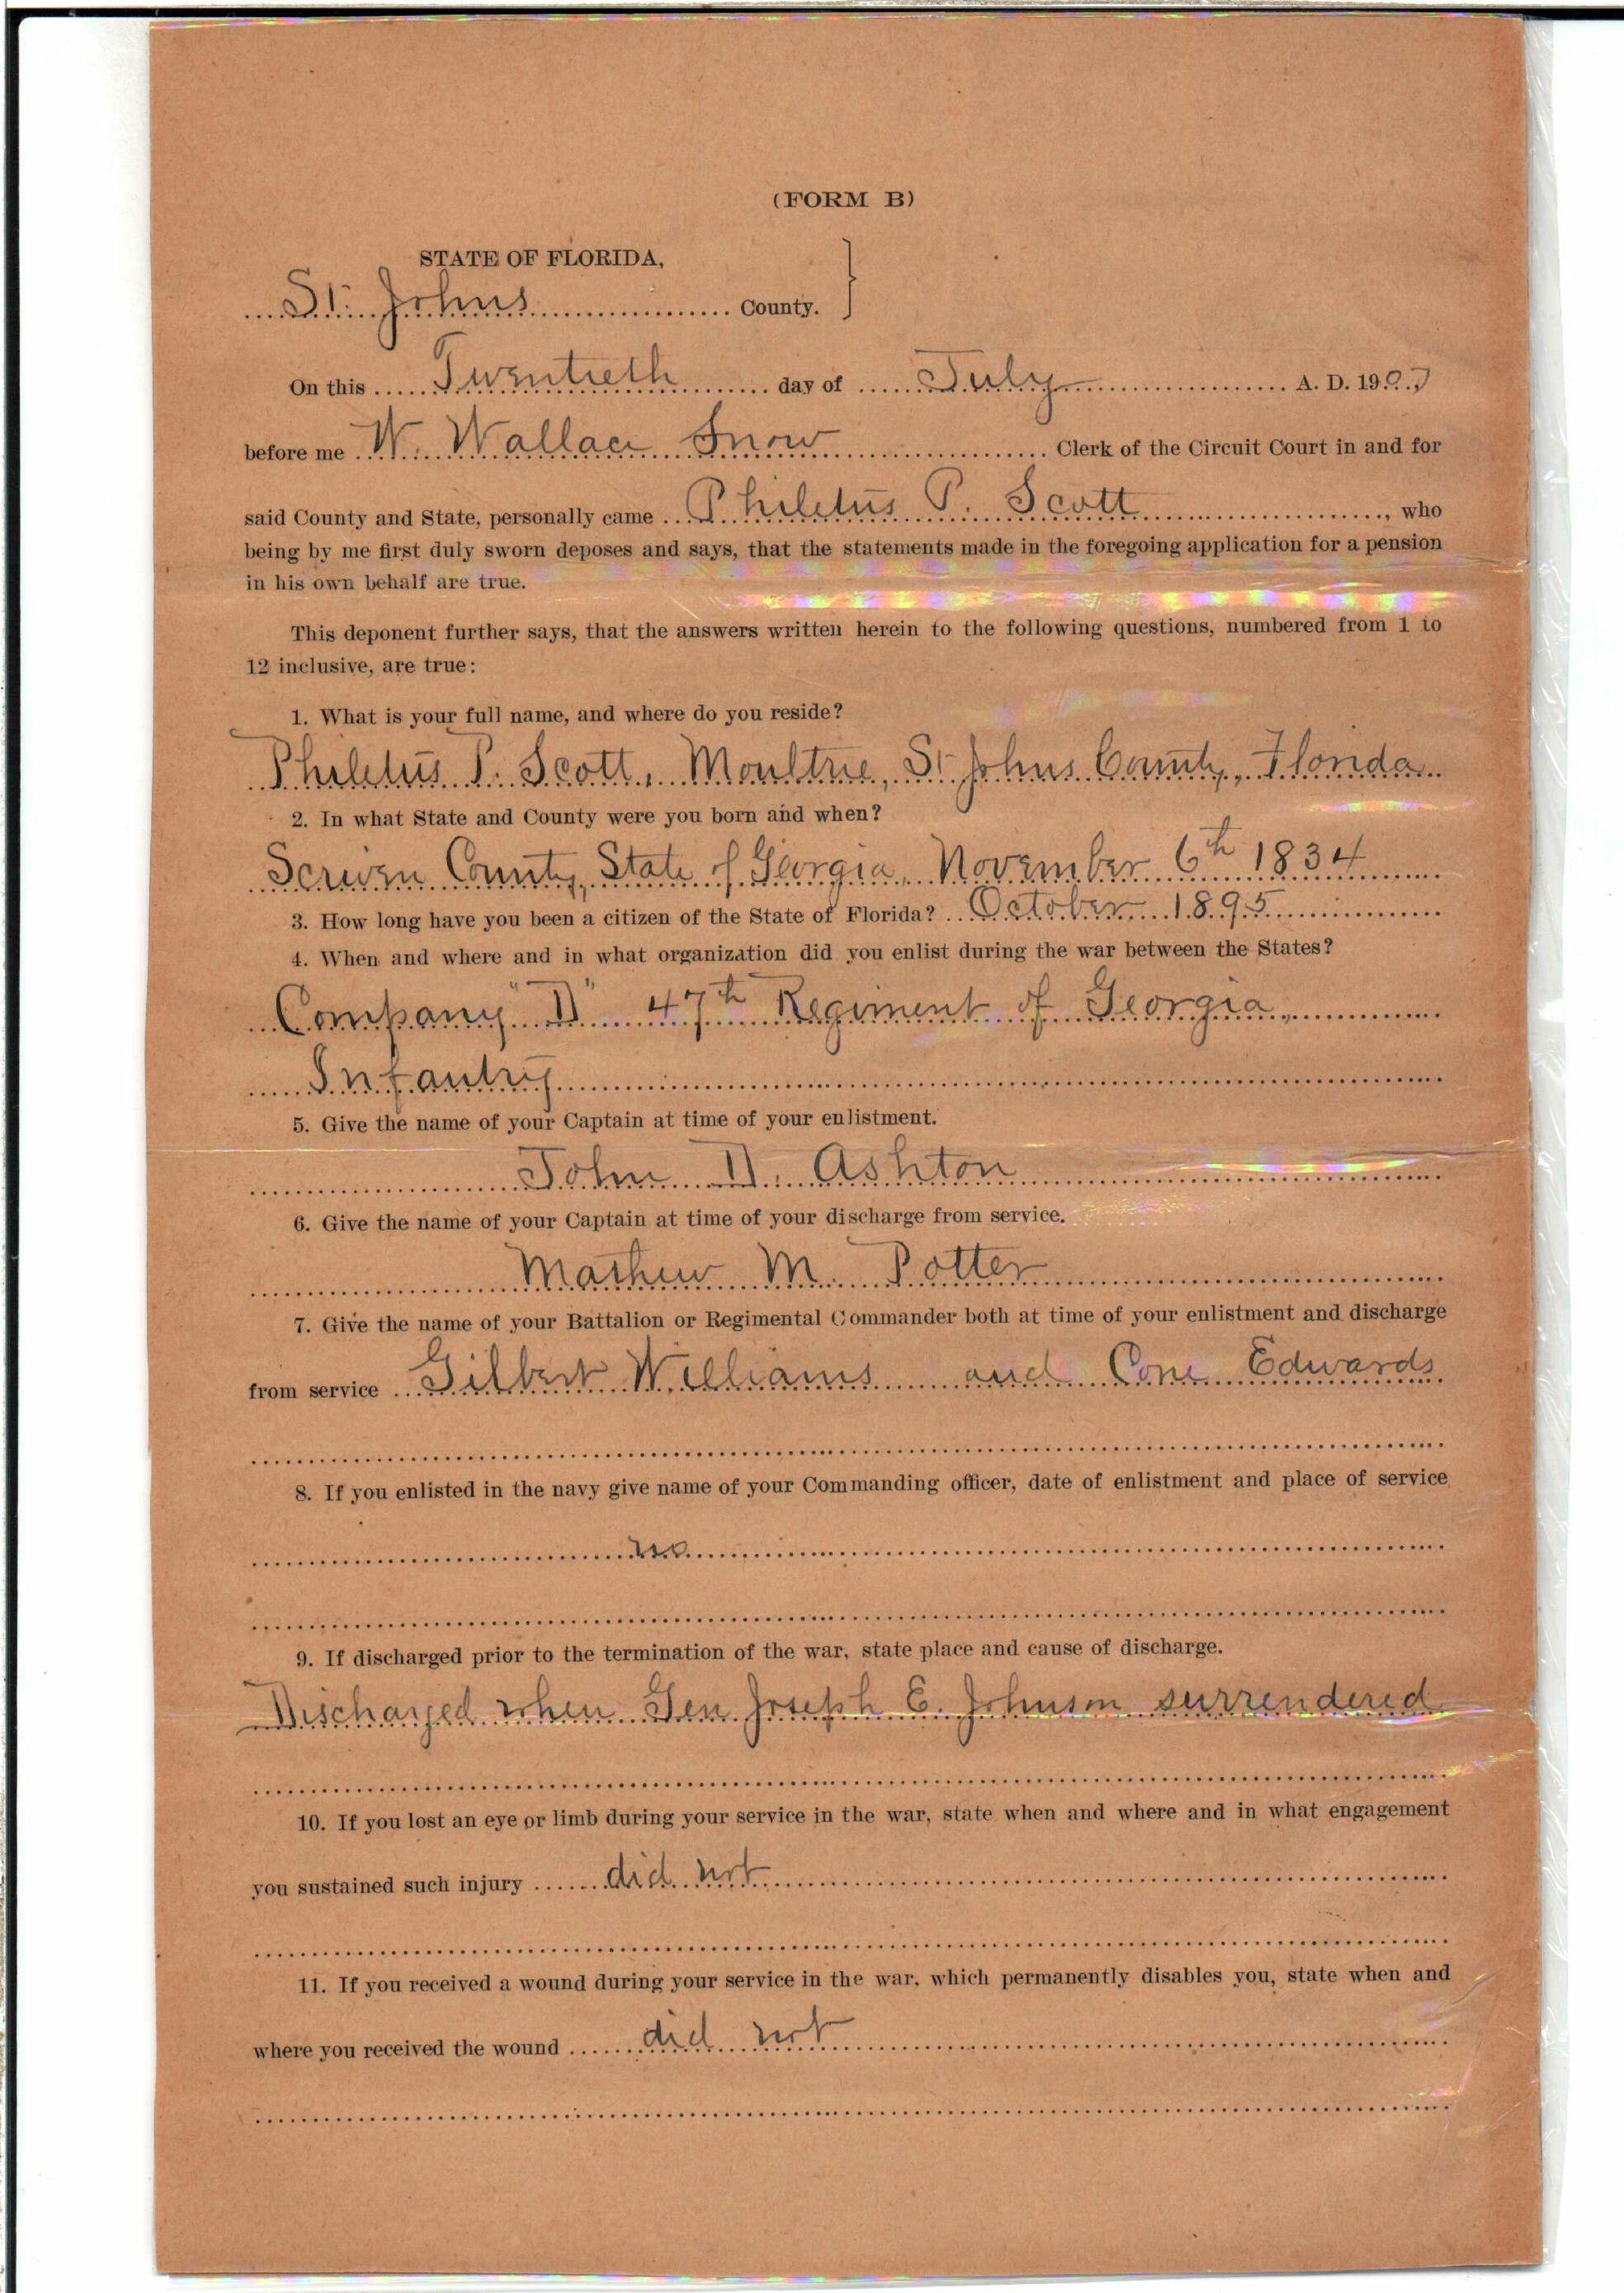 (FORM B)
STATE OF FLORIDA,
St. Johns County.
On this Twentieth day of July A. D. 1907
before me W. Wallace Snow Clerk of the Circuit Court in and for
said County and State, personally came Philetus P. Scott, who
being by me first duly sworn deposes and says, that the statements made in the foregoing application for a pension
in his own behalf are true.
This deponent further says, that the answers written herein to the following questions, numbered from 1 to
12 inclusive, are true:
1. What is your full name, and where do you reside?
Philetus P. Scott, Moultrie, St Johns County, Florida
2. In what State and County were you born and when?
Scriven County, State of Georgia, November 6th 1834
3. How long have you been a citizen of the State of Florida? October 1895
4. When and where and in what organization did you enlist during the war between the States?
Company "D" 47th Regiment of Georgia
Infantry
5. Give the name of your Captain at time of your enlistment.
John D. Ashton
6. Give the name of your Captain at time of your discharge from service.
Mathew M. Potter
7. Give the name of your Battalion or Regimental Commander both at time of your enlistment and discharge
from service Gilbert Williams and Cone Edwards
8. If you enlisted in the navy give name of your Commanding officer, date of enlistment and place of service
no
9. If discharged prior to the termination of the war, state place and cause of discharge.
Discharged when Gen Joseph E. Johnson surrendered
10. If you lost an eye or limb during your service in the war, state when and where and in what engagement
you sustained such injury did not
11. If you received a wound during your service in the war, which permanently disables you, state when and
where you received the wound did not